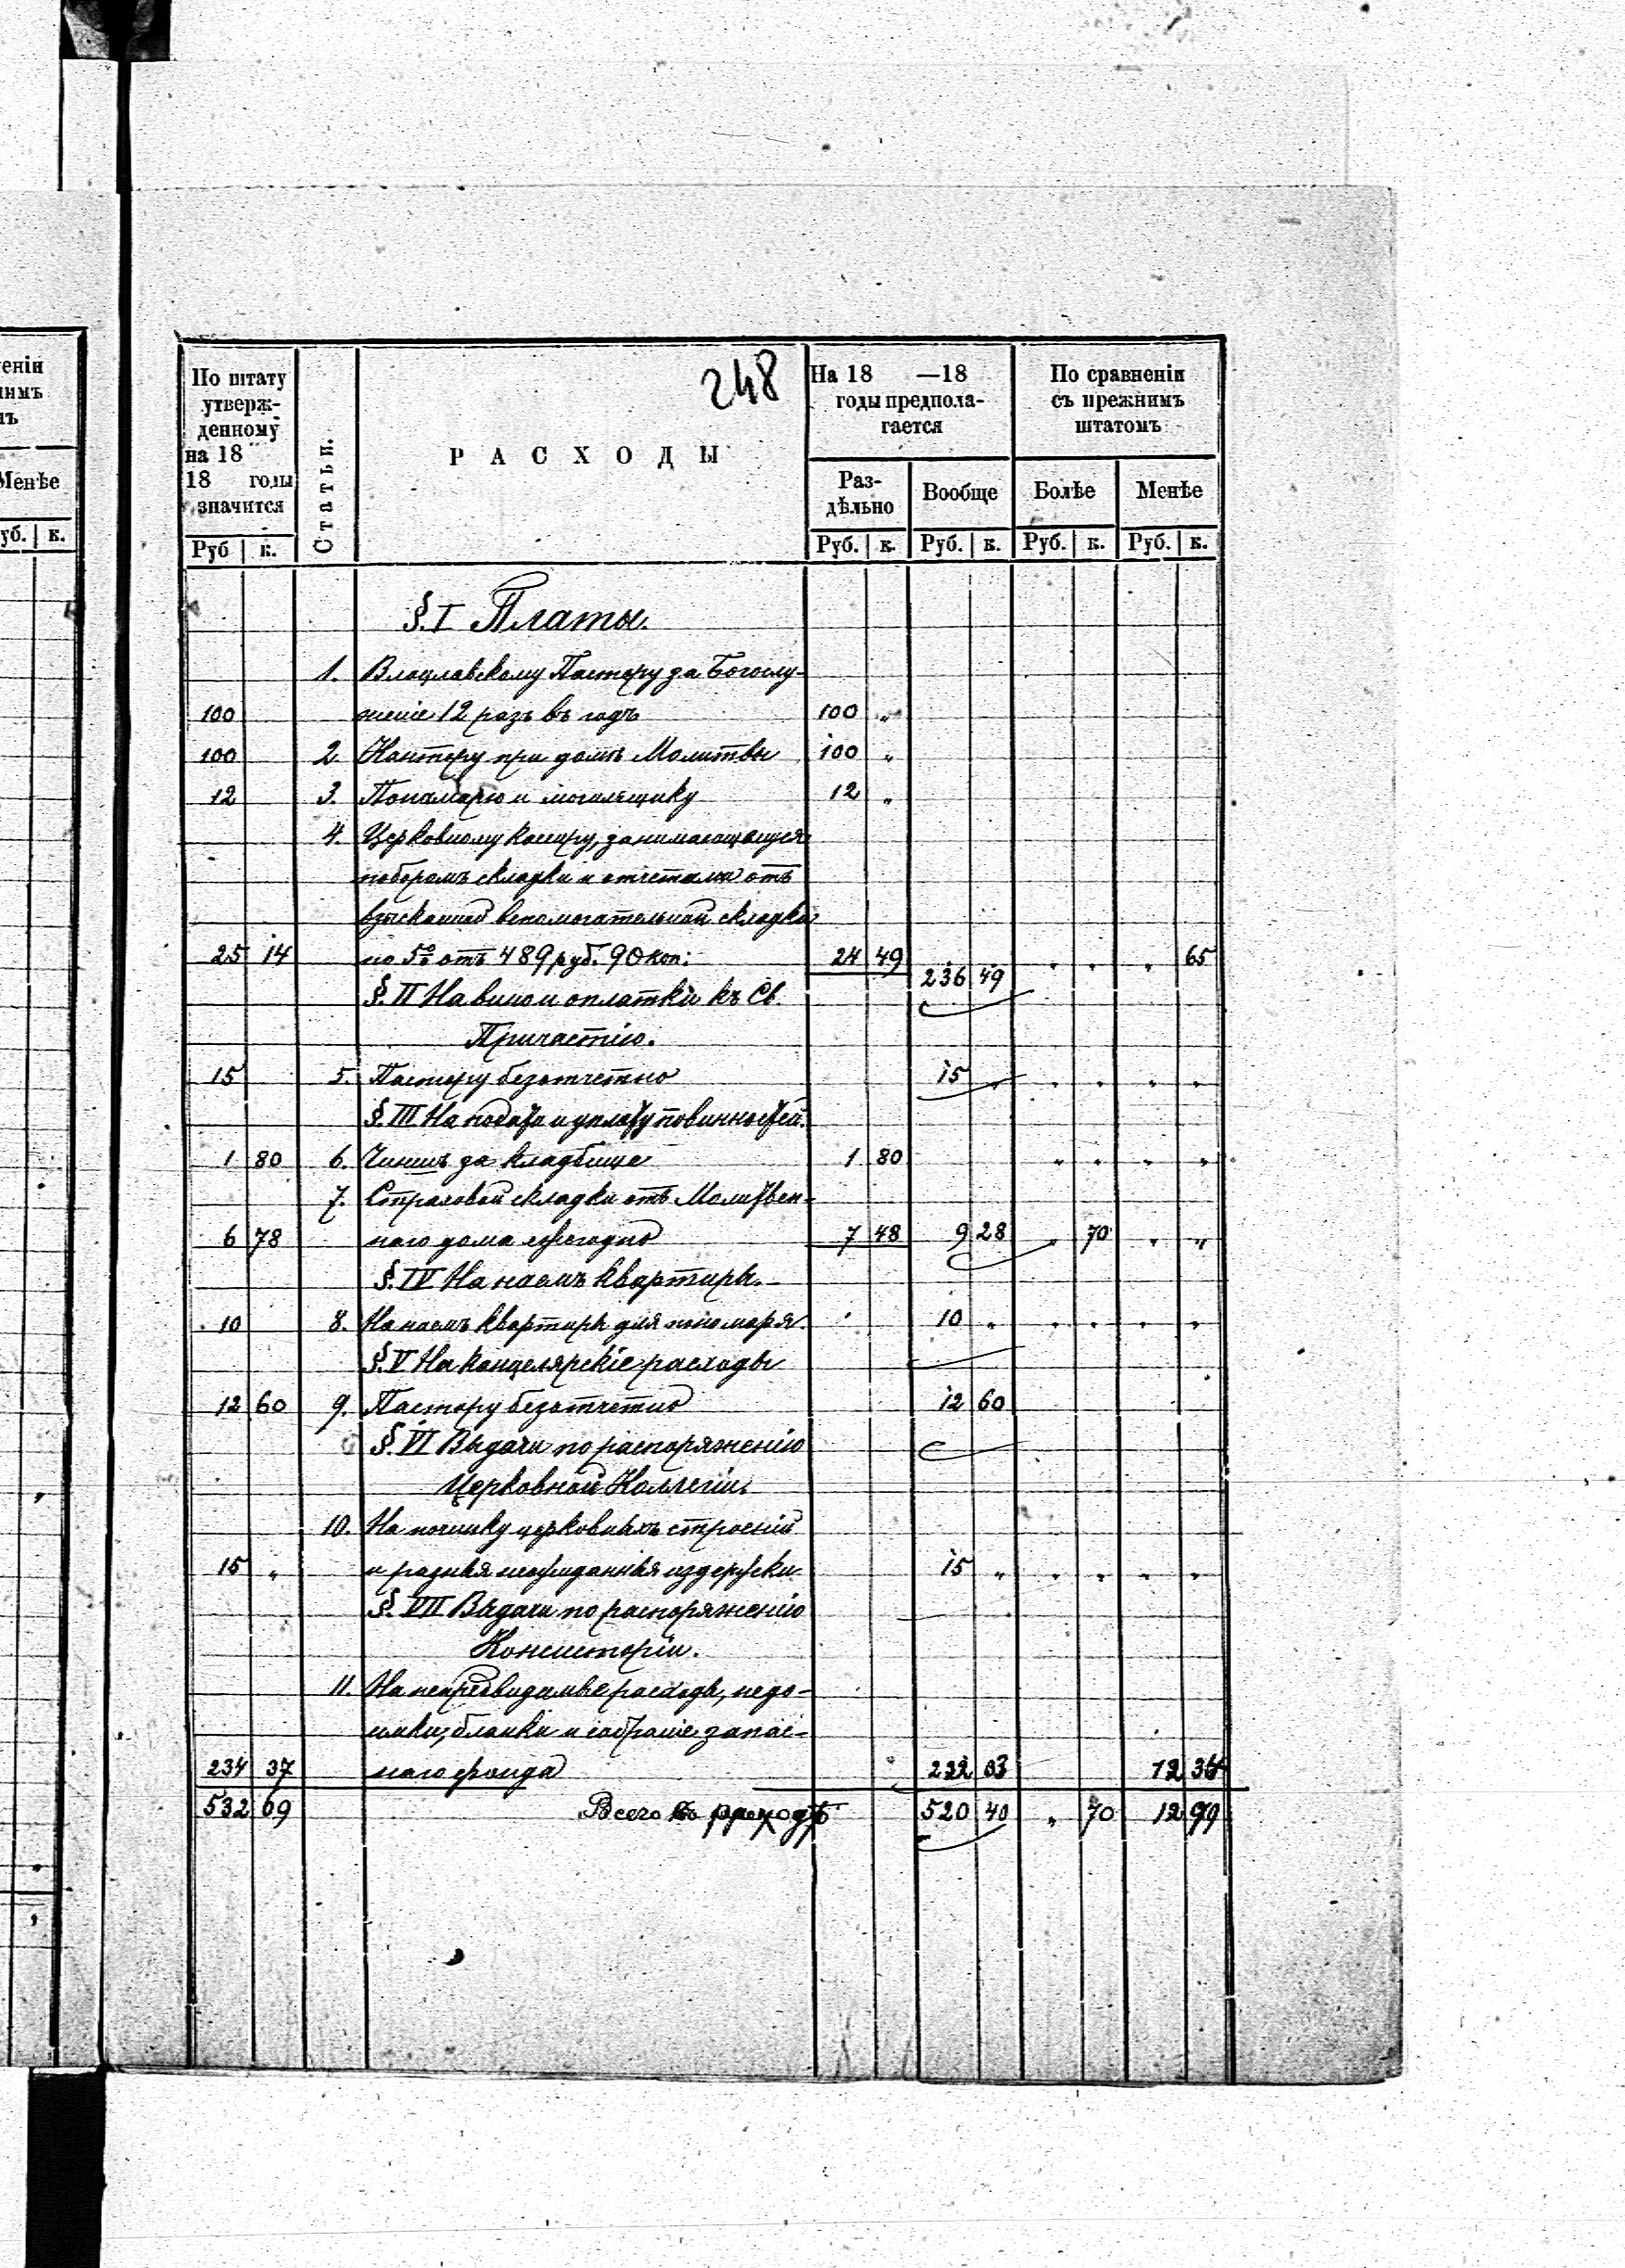 ені
имъ
ъ
Менѣе
уб. к.
248
По штату утверж-
денному
на 18
18 годы
значится
Руб к.
Статьи.
РАСХОДЫ
На 18 —18
годы предпола-
гается
Раз-
дѣльно
Вообще
Руб. к. Руб. к.
По сравненіи
съ прежнимъ
штатомъ
Болѣе Менѣе
Руб. к. Руб. к.
§. I Платы.
1. Влоцлавскому Пастору за Богослу-
100 женіе 12 разъ въ годъ 100 „
100 2. Кантору при домѣ Молитвы 100 „
12 3. Пономарю и могильщику 12 „
4. Церковному кассиру, занимающемуся
поборомъ складки и отчетами отъ
взысканной вспомогательной складки
25 14 по 5% отъ 489 руб. 90 коп: 24 49 236 49 „ „ „ 65
§. II На вино и оплатки къ Св.
Причастію.
15 5. Пастору безотчетно 15 „ „ „ „ „
§. III На подати и уплату повинностей.
1 80 6. Чиншъ за кладбище 1 80 „ „ „ „
7. Страховой складки отъ Молитвен-
6 78 наго дома ежегодно 7 48 9 28 „ 70 „ „
§. IV На наемъ квартиры.
10 8. На наемъ квартиры для пономаря. 10 „ „ „ „ „
§. V На канцелярскіе расходы
12 60 9. Пастору безотчетно 12 60
§. VI Выдачи по распоряженію
Церковной Коллегіи.
10. На починку церковныхъ строеній
15 „ и разныя неожиданныя издержки 15 „ „ „ „ „
§. VII Выдачи по распоряженію
Консисторіи.
11. На непредвидимые расходы, недо-
имки, бланки и собраніе запас-
234 37 наго фонда 222 03 12 34
532 69 Всего въ расходѣ 520 40 „ 70 12 99